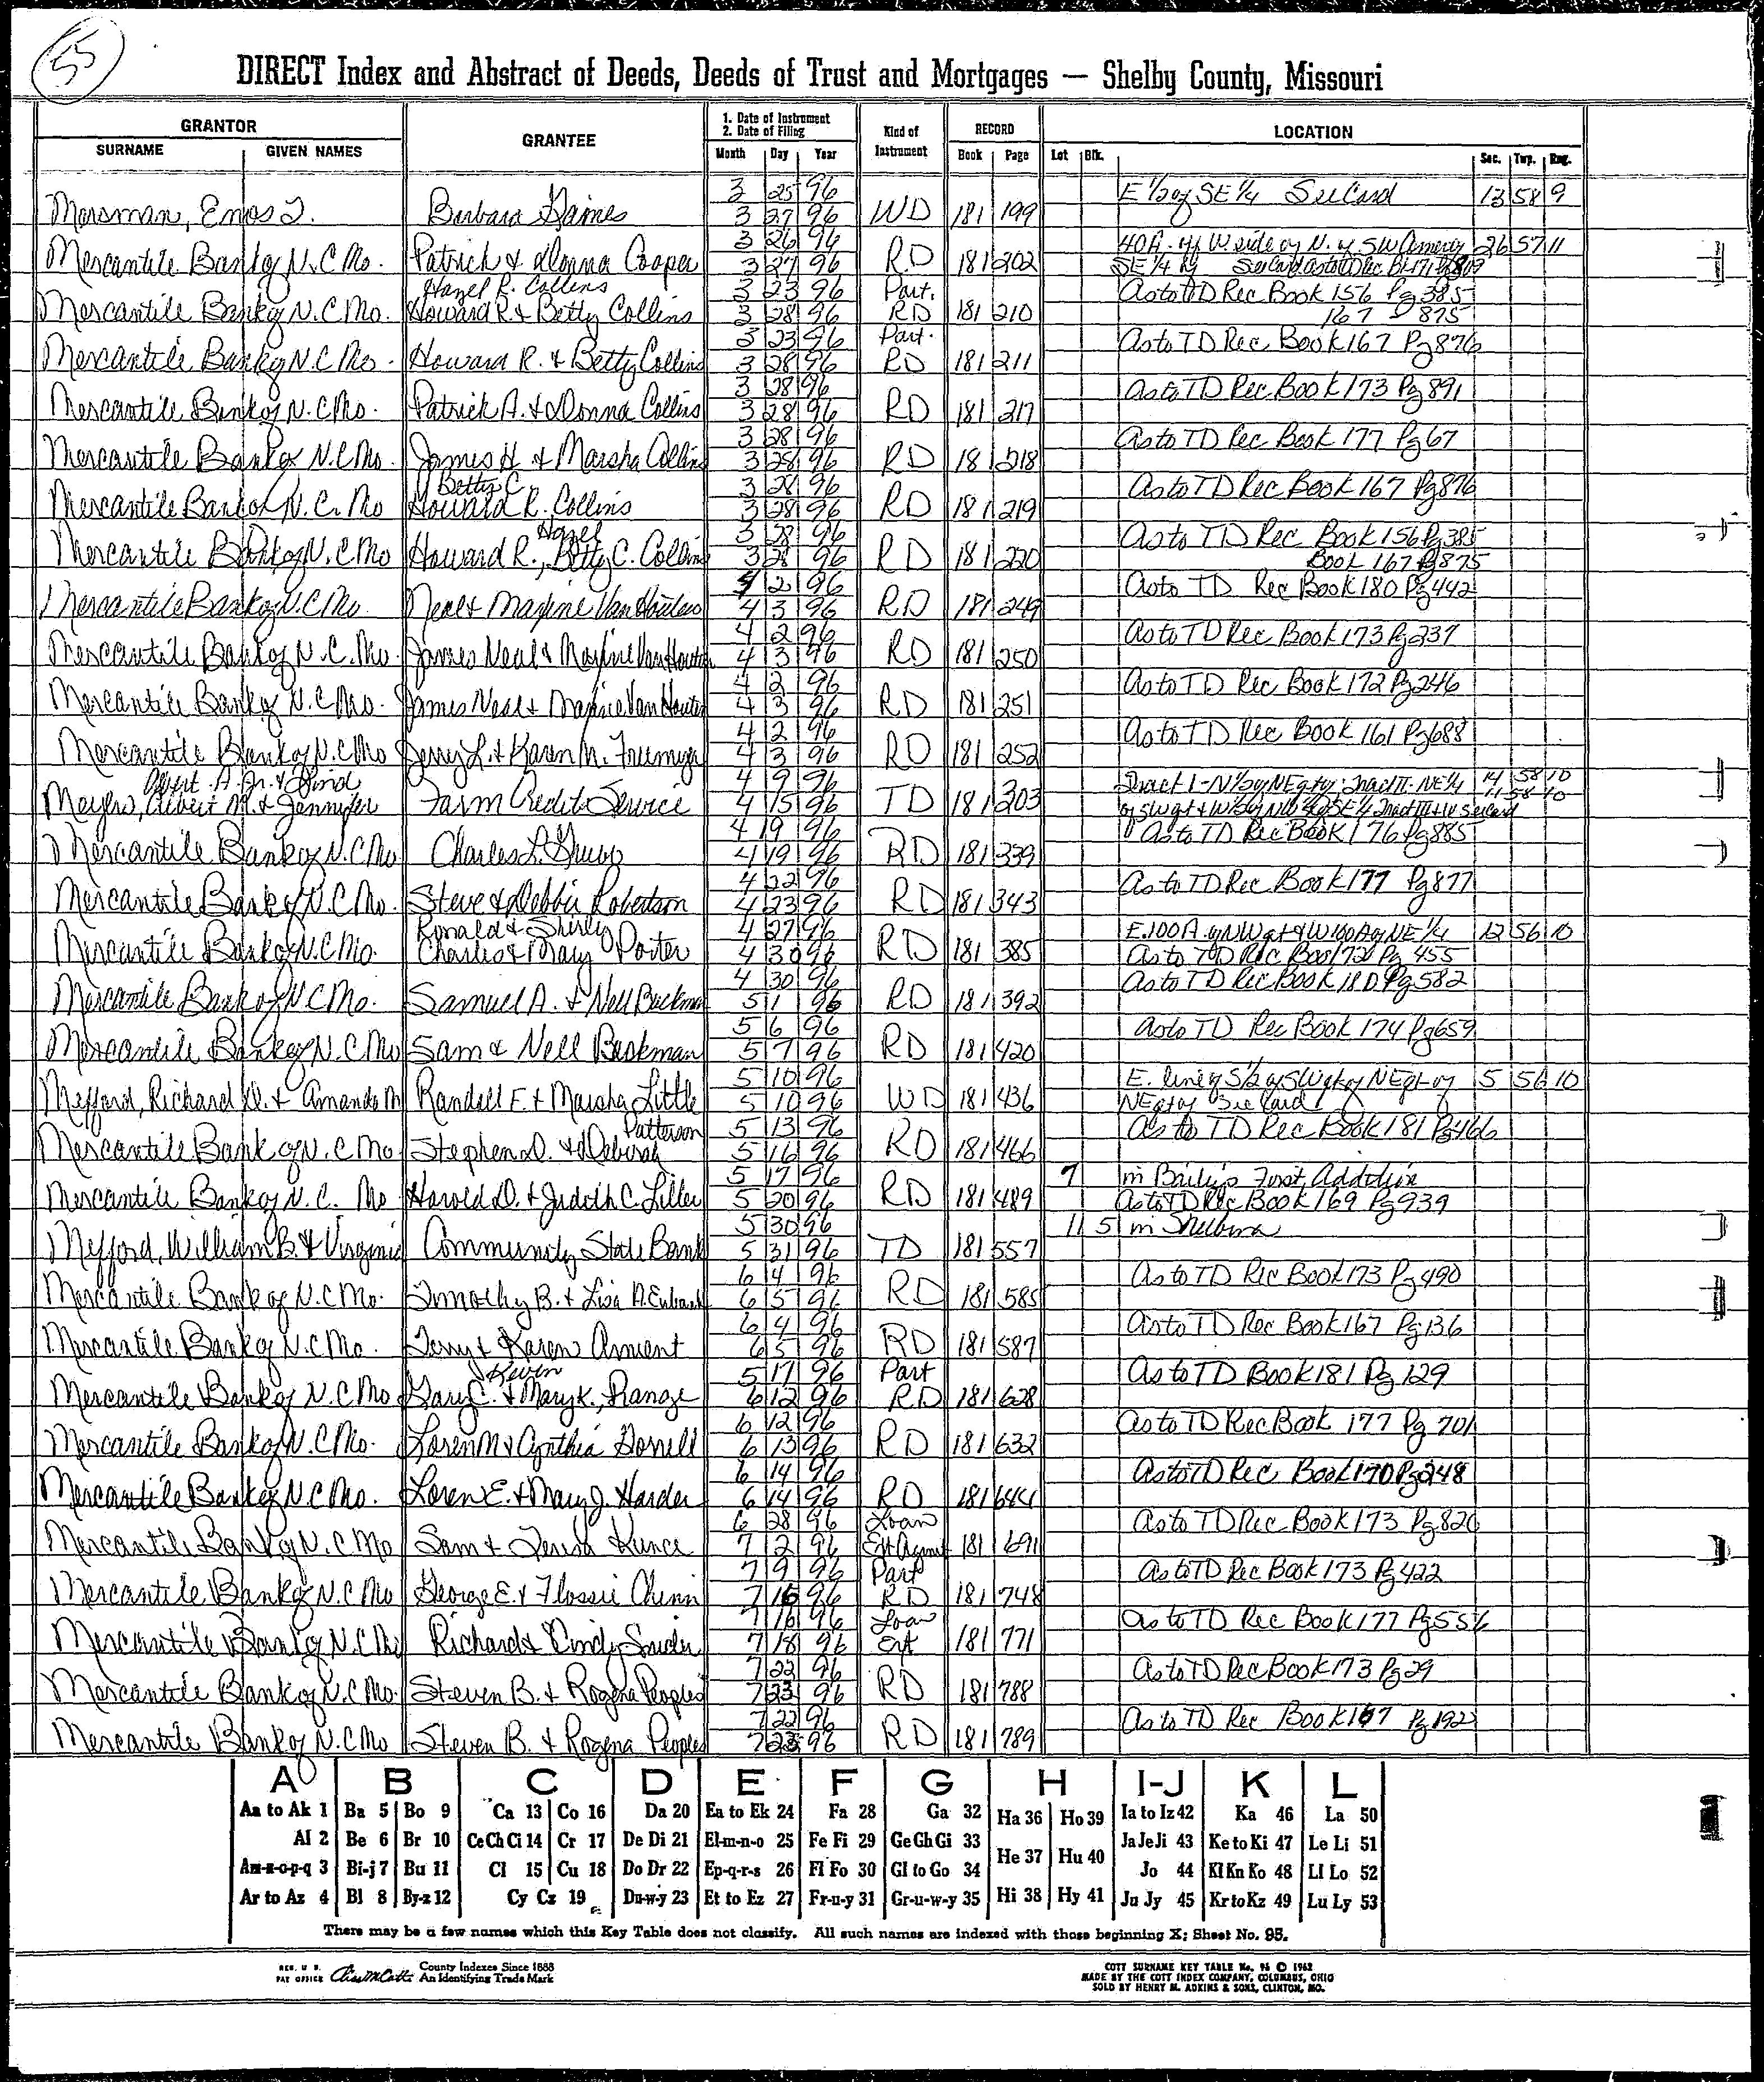 55
DIRECT Index and Abstract of Deeds, Deeds of Trust and Mortgages — Shelby County, Missouri
GRANTOR GRANTEE 1. Date of Instrument 2. Date of Filing Kind of Instrument RECORD LOCATION
SURNAME GIVEN NAMES Month Day Year Book Page Lot Blk. Sec. Twp. Rng.
3 25 96 E 1/2 of SE 1/4 See Card 13 58 9
Mersman, Enos J. Barbara Gaines 3 27 96 WD 181 199
3 26 96 40A. off W. side of N. of SW 26 57 11
Mercantile Bank of N.C. Mo. Patrick & Donna Cooper 3 27 96 RD 181 202 SE 1/4
Hazel R. Collins 3 23 96 Part. As to TD Rec Book 156 Pg 385
Mercantile Bank of N.C. Mo. Howard R. & Betty Collins 3 28 96 RD 181 210 167 875
3 23 96 Part. As to TD Rec. Book 167 Pg 876
Mercantile Bank of N.C. Mo. Howard R. & Betty Collins 3 28 96 RD 181 211
3 28 96 As to TD Rec. Book 173 Pg 891
Mercantile Bank of N.C. Mo. Patrick A. & Donna Collins 3 28 96 RD 181 217
3 28 96 As to TD Rec Book 177 Pg 67
Mercantile Bank of N.C. Mo. James H & Marsha Collins 3 28 96 RD 181 218
Betty C. 3 28 96 As to TD Rec Book 167 Pg 876
Mercantile Bank of N.C. Mo Howard R. Collins 3 28 96 RD 181 219
Hazel 3 28 96 As to TD Rec Book 156 Pg 385
Mercantile Bank of N.C. Mo Howard R., Betty C. Collins 3 28 96 RD 181 220 Book 167 Pg 875
4 2 96 As to TD Rec Book 180 Pg 442
Mercantile Bank of N.C. Mo. Neal & Maxine Van Houten 4 3 96 RD 181 249
4 2 96 As to TD Rec Book 173 Pg 237
Mercantile Bank of N.C. Mo. James Neal & Maxine Van Houten 4 3 96 RD 181 250
4 2 96 As to TD Rec Book 172 Pg 246
Mercantile Bank of N.C. Mo. James Neal & Maxine Van Houten 4 3 96 RD 181 251
4 2 96 As to TD Rec Book 161 Pg 688
Mercantile Bank of N.C. Mo Jerry L. & Karen M. 4 3 96 RD 181 252
Albert A. Jr. & 4 9 96 Tract I - N 1/2 of NE qtr; Tract II - NE 1/4 14 58 10
Meyers, Albert M. & Jennifer Farm Credit Service 4 15 96 TD 181 303 11 58 10
4 19 96 As to TD Rec Book 176 Pg 885
Mercantile Bank of N.C. Mo Charles L. Grubb 4 19 96 RD 181 339
4 22 96 As to TD Rec. Book 177 Pg 877
Mercantile Bank of N.C. Mo. Steve & Debbie Robertson 4 23 96 RD 181 343
Ronald & Shirley 4 27 96 E. 100 A. of NW qt & W 100 A of NE 1/4 12 56 10
Mercantile Bank of N.C. Mo. Charles & Mary Porter 4 30 96 RD 181 385 As to TD Rec Book 172 Pg 455
4 30 96 As to TD Rec Book 180 Pg 582
Mercantile Bank of N.C. Mo. Samuel A. & Nell Beckman 5 1 96 RD 181 392
5 6 96 As to TD Rec Book 174 Pg 659
Mercantile Bank of N.C. Mo Sam & Nell Beckman 5 7 96 RD 181 420
5 10 96 E. line of S 1/2 of SW qt of NE qt of 5 56 10
Mefford, Richard D. & Amanda M Randell F. & Marsha Little 5 10 96 WD 181 436 NE qt of See Card
Patterson 5 13 96 As to TD Rec Book 181 Pg 466
Mercantile Bank of N.C. Mo Stephen D. & Deborah 5 16 96 RD 181 466
5 17 96 7 in Baily's First Addition
Mercantile Bank of N.C. Mo Harold D. & Judith C. Liller 5 20 96 RD 181 489 As to TD Rec Book 169 Pg 939
5 30 96 11 5 in Shelbina
Mefford, William B. & Virginia Community State Bank 5 31 96 TD 181 557
6 4 96 As to TD Rec Book 173 Pg 490
Mercantile Bank of N.C. Mo. Timothy B. & Lisa Eubank 6 5 96 RD 181 585
6 4 96 As to TD Rec Book 167 Pg 136
Mercantile Bank of N.C. Mo. Terry & Karen Arment 6 5 96 RD 181 587
Kevin 5 17 96 Part As to TD Book 181 Pg 129
Mercantile Bank of N.C. Mo Gary C. & Mary K., Range 6 12 96 RD 181 628
6 12 96 As to TD Rec Book 177 Pg 701
Mercantile Bank of N.C. Mo. Loren M & Cynthia Dorrell 6 13 96 RD 181 632
6 14 96 As to TD Rec Book 170 Pg 248
Mercantile Bank of N.C. Mo. Loren E. & Mary J. Harder 6 14 96 RD 181 644
6 28 96 Loan As to TD Rec Book 173 Pg 820
Mercantile Bank of N.C. Mo Sam & Teresa Kunce 7 2 96 Ext Agmt 181 691
7 9 96 Part As to TD Rec Book 173 Pg 422
Mercantile Bank of N.C. Mo George E. & Flossie Chinn 7 16 96 RD 181 748
7 16 96 Loan As to TD Rec Book 177 Pg 556
Mercantile Bank of N.C. Mo Richard & Cindy Snider 7 18 96 Ext 181 771
7 22 96 As to TD Rec Book 173 Pg 29
Mercantile Bank of N.C. Mo. Steven B. & Rogena Peoples 7 23 96 RD 181 788
7 22 96 As to TD Rec Book 167 Pg 192
Mercantile Bank of N.C. Mo Steven B. & Rogena Peoples 7 23 96 RD 181 789
A B C D E F G H I-J K L
Aa to Ak 1 Ba 5 Bo 9 Ca 13 Co 16 Da 20 Ea to Ek 24 Fa 28 Ga 32 Ha 36 Ho 39 Ia to Iz 42 Ka 46 La 50
Al 2 Be 6 Br 10 Ce Ch Ci 14 Cr 17 De Di 21 El-m-n-o 25 Fe Fi 29 Ge Gh Gi 33 He 37 Hu 40 Ja Je Ji 43 Ke to Ki 47 Le Li 51
Am-n-o-p-q 3 Bi-j 7 Bu 11 Cl 15 Cu 18 Do Dr 22 Ep-q-r-s 26 Fl Fo 30 Gl to Go 34 Jo 44 Kl Kn Ko 48 Ll Lo 52
Ar to Az 4 Bl 8 By-z 12 Cy Cz 19 Du-w-y 23 Et to Ez 27 Fr-u-y 31 Gr-u-w-y 35 Hi 38 Hy 41 Ju Jy 45 Kr to Kz 49 Lu Ly 53
There may be a few names which this Key Table does not classify. All such names are indexed with those beginning X; Sheet No. 95.
REG. U. S. PAT OFFICE County Indexes Since 1888 An Identifying Trade Mark
COTT SURNAME KEY TABLE No. 96 © 1962
MADE BY THE COTT INDEX COMPANY, COLUMBUS, OHIO
SOLD BY HENRY M. ADKINS & SONS, CLINTON, MO.